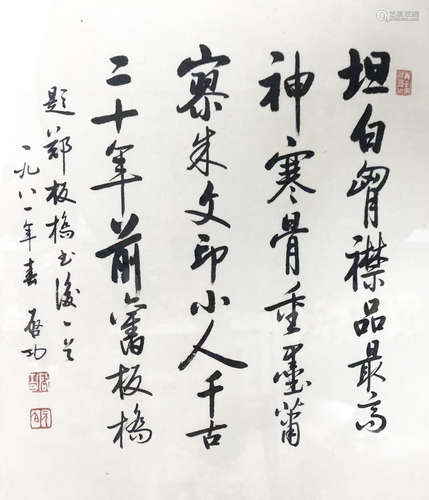 坦白胷襟品最高
神寒骨重墨蕭
寥朱文印小人千古
二十年前舊板橋
題鄭板橋書後一首
一九八一年春 啟功